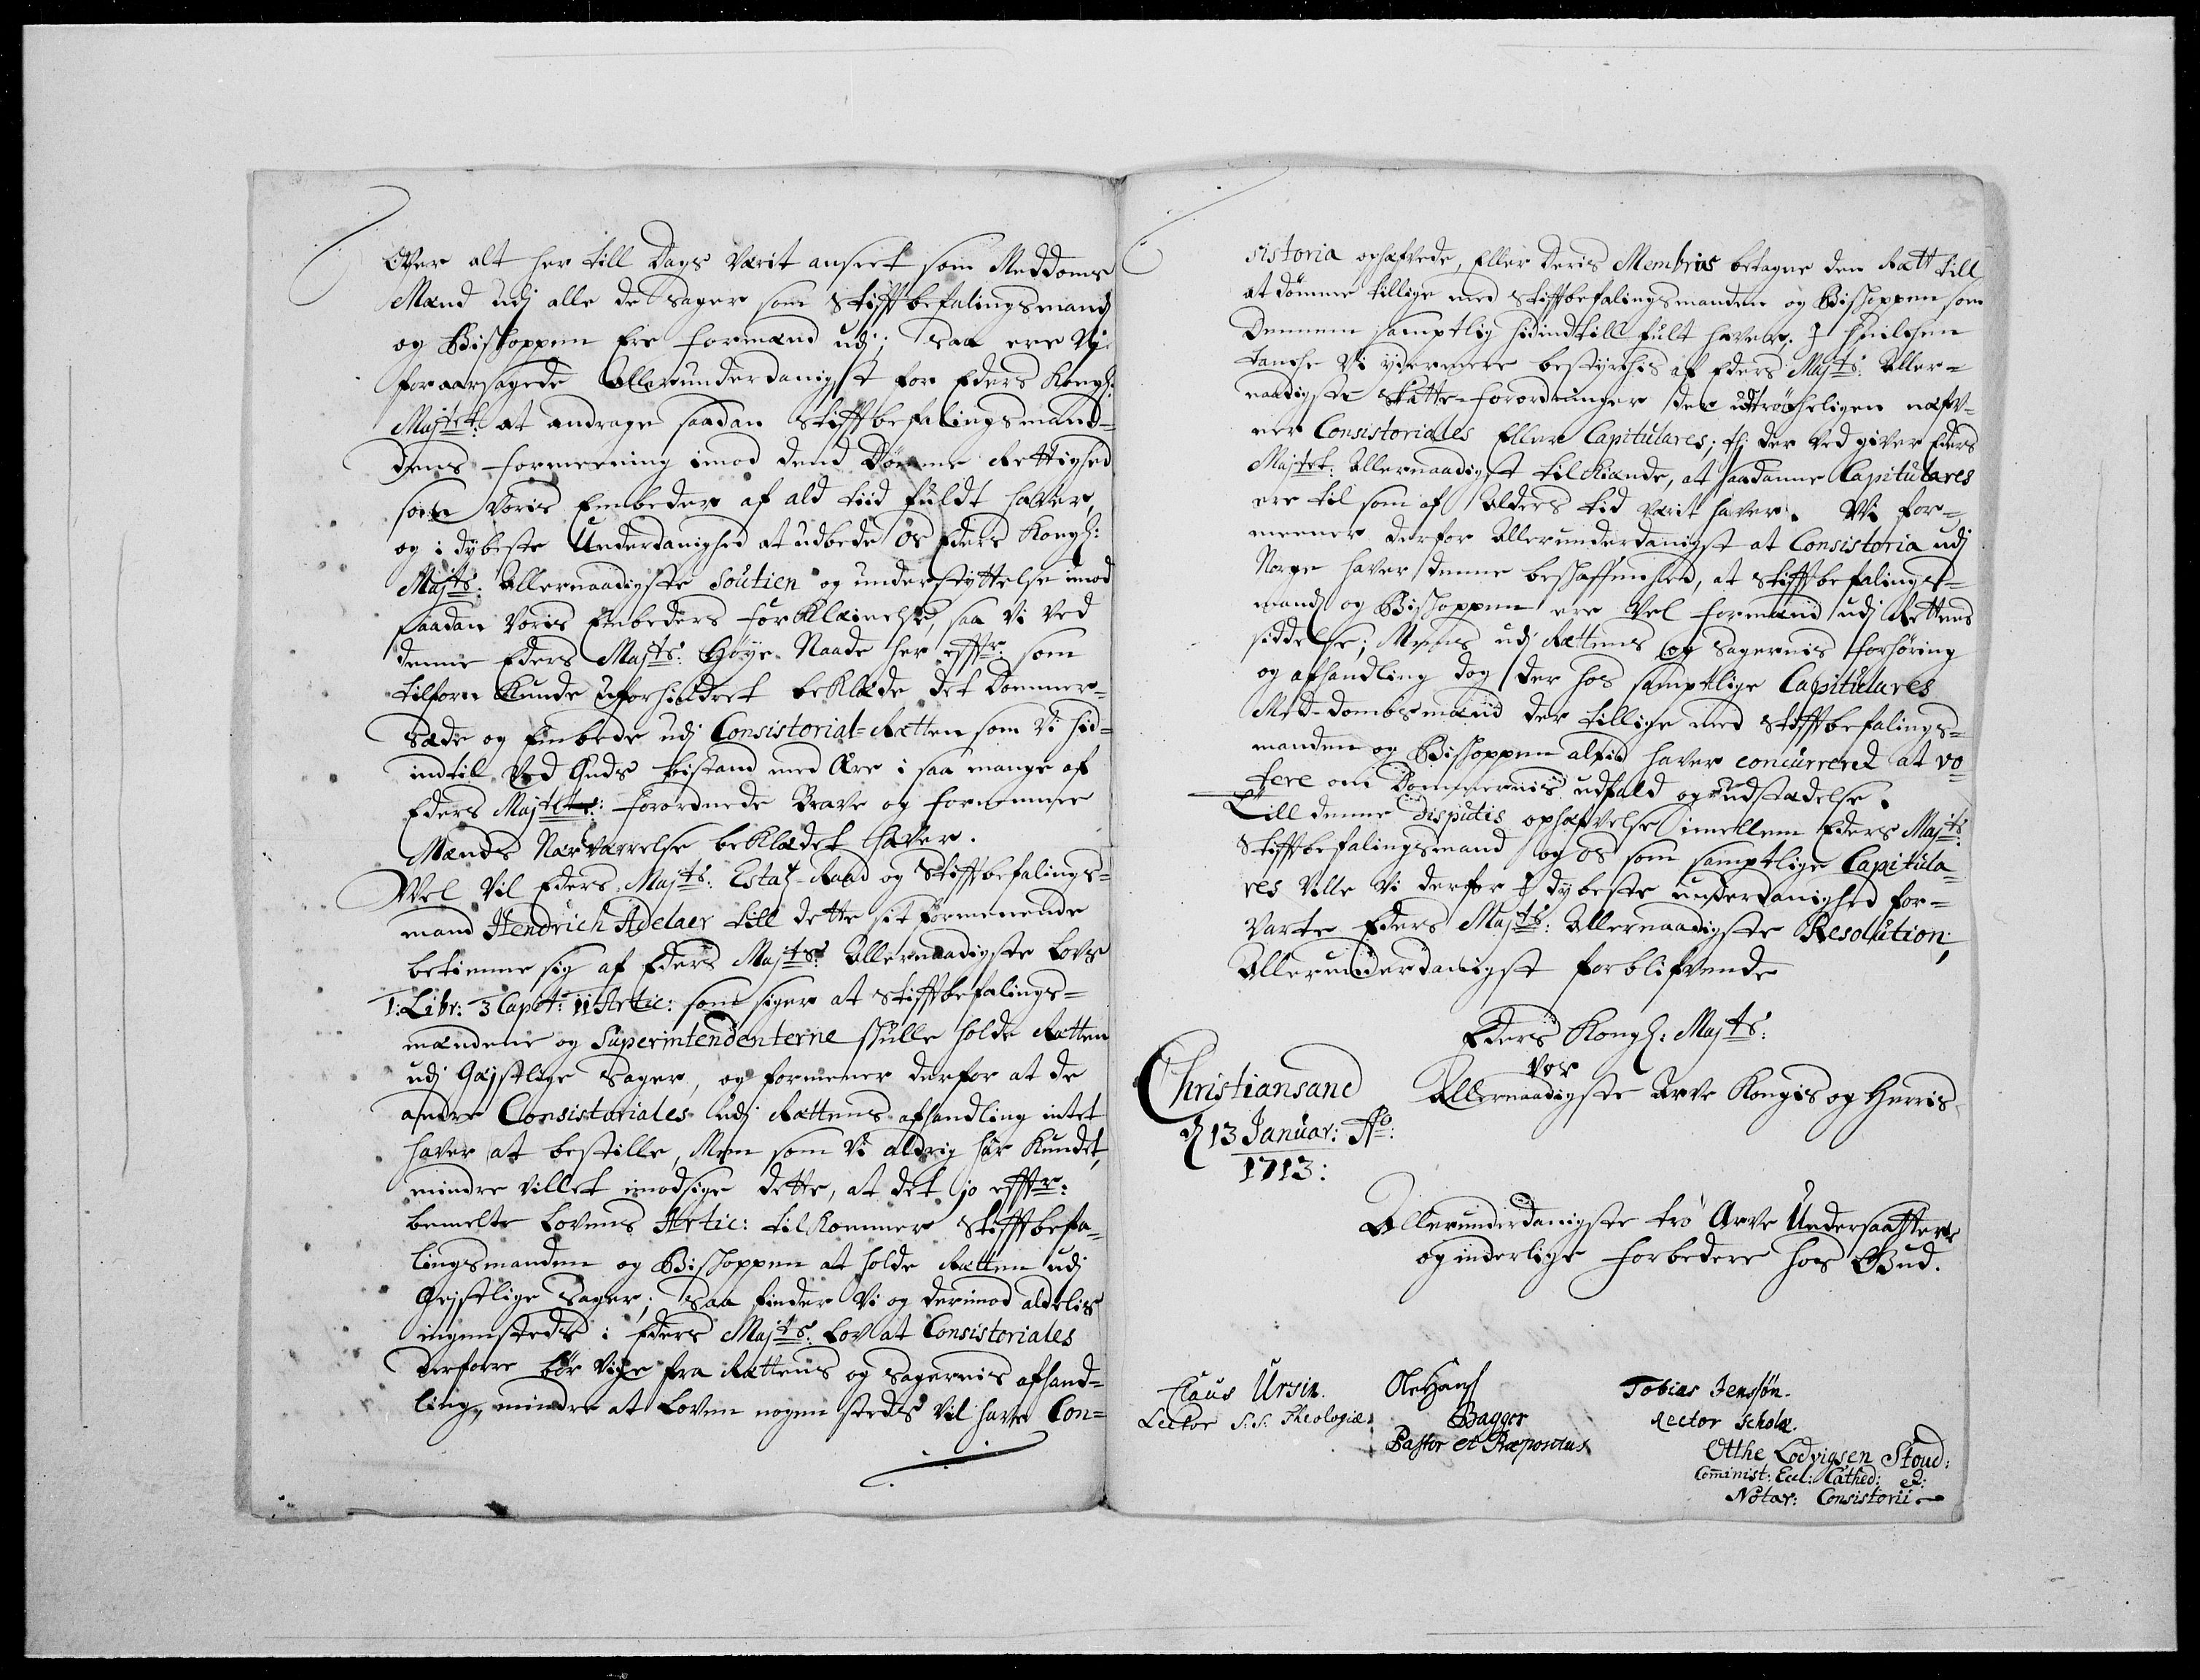 Over alt her till Dags værit anseet som Meddoms
Mænd udj alle de Sager som Stiftbefalingsmand
og Bishoppen Ere formænd udj; saa ere Vj
foraarsagede Allerunderdanigst for Eders Kongl:
Majtet: at andrage saadan Stiftbefalingsmand=
dens formeening imod dend Dömme Rettighed
som Voris Embeder af ald tiid fuldt haver,
og i dybeste Underdanighed at udbede os Eders Kongl:
Majts: Allernaadigste Soutien og understyttelse imod
saadan Voris Embeders forklæinelse, saa Vi ved
denne Eders Majts: Høye Naade her effr: som
tilforn kunde uforhindret beklæde det Dommer=
Sæde og Embede udj Consistorial=Rætten som Vi hid=
indtil Ved Guds bistand med Ære i saa mange af
Eders Majtets: forordnede Brave og fornemme
Mænds Nærværrelse beklædet haver.
Vel Vil Eders Majts: Estatz-Raad og Stiftbefalings=
mand Hendrich Adelaer till dette sit formenende
betienne sig af Eders Majts: Allernaadigste Lovs
1: Libr: 3 Capit: 11 Artic: som siger at Stiftbefalings=
mændene og Superintendenterne skulle holde Rætten
udj Gejstlige Sager, og formener derfor at de
andre Consistoriales udj Rættens afhandling intet
haver at bestille, Men som Vi aldrig har kundet,
mindre villet imodsige dette, at det jo effr:
bemelte Lovens Artic: tilkommer Stiftbefa=
lingsmanden og Bishoppen at holde Rætten udj
Gejstlige Sager; Saa finder Vi og derimod aldelis
ingensteds i Eders Majts: Lov at Consistoriales
derforre bör Vige fra Rættens og Sagernis afhand=
ling, mindre at Loven nogen steds Vil have Con=
sistoria ophæfvede, Eller Deris Membris betagne den Rætt till
at dömme tillige med Stiftbefalingsmanden og Bishoppen som
Dennem samptlig hidindtill fult haver. I hvilchen
tanche Vi ydermere bestyrchis af Eders Majts: Aller=
naadigste Skatte-forordninger der udtröcheligen næfv=
ner Consistoriales Eller Capitulares; thj der ved giver Eders
Majtet: Allernaadigst tilkiænde, at saadanne Capitulares
ere til som af Alders tid værit haver. Vi for=
meener derfor Allerunderdanigst at Consistoria udj
Norge haver denne beskaffenhed, at Stiftbefalings=
mand og Bishoppen ere Vel formænd udj Rettens
siddelse; Mens udj Rættens og Sagernis forhöring
og afhandling dog der hos samptlige Capitulares
Med-dombsmænd der tillige med Stiftbefalings=
manden og Bishoppen altid haver concurreret at vo=
tere om Dommernis udfald og udstædelse.
Till denne Disputis ophæfvelse imellem Eders Majts:
Stiftbefalingsmand og os som samptlige Capitula=
res Ville Vi derfor I dybeste underdanighed for=
varte Eders Majts: Allernaadigste Resolution,
Allerunderdanigst forblifvende
Eders Kongl: Majts:
vor
Allernaadigste Arve Kongis og Herris
Christiansand
d 13 Januar: Ao:
1713:
Allerunderdanigste tro Arve Undersaatter
og inderlige forbedere hos Gud.
Claus Ursin.
Lector S.S. Theologiæ
Ole Hans
Bagger
Pastor et Præpositus
Tobias Jenssøn.
Rector Scholæ.
Otthe Lodvigsen Stoud:
Com̄inist: Eccl: Cathed: &:
Notar: Consistorii